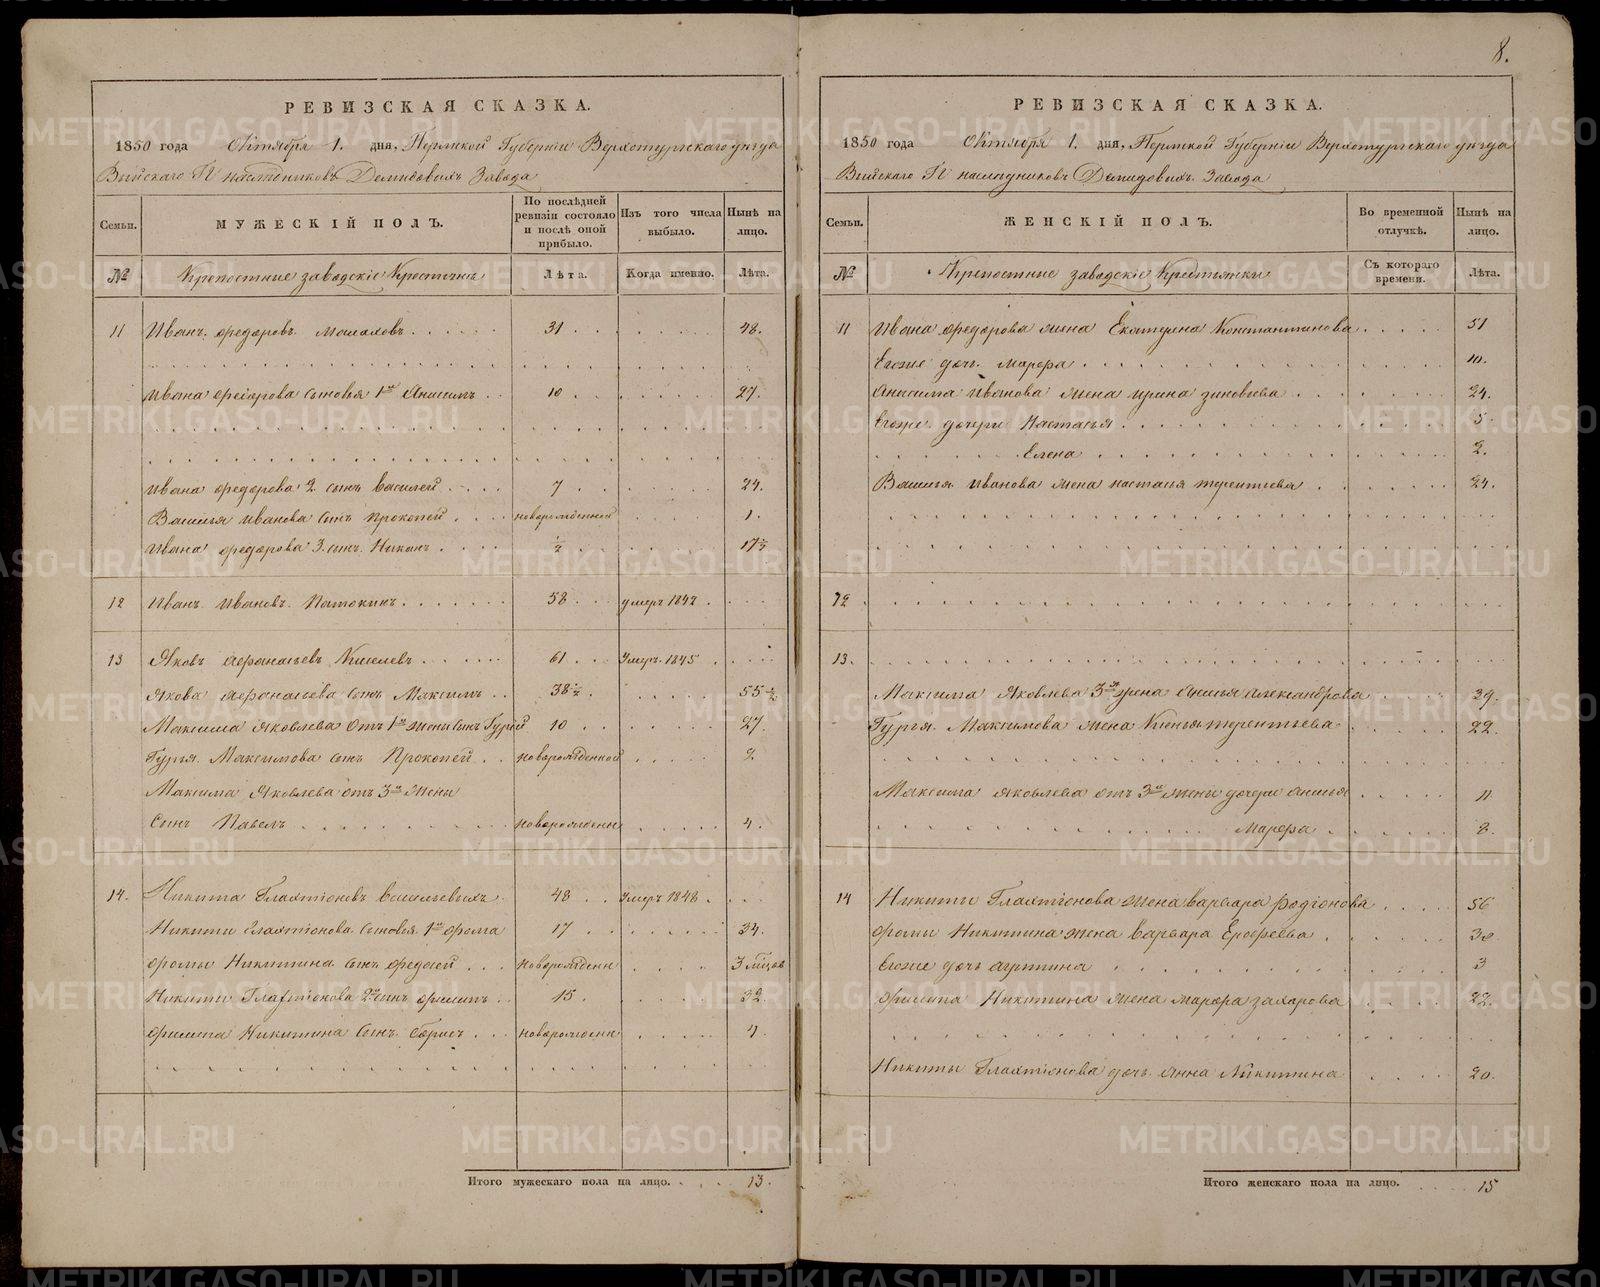 8.
РЕВИЗСКАЯ СКАЗКА.
1850 года Октября 1. дня, Пермской Губерніи Верхотурскаго уѣзда
Выйскаго Гг наслѣдниковъ Демидовыхъ Завода
Семьи. МУЖЕСКІЙ ПОЛЪ. По послѣдней ревизіи состояло и послѣ оной прибыло. Изъ того числа выбыло. Нынѣ на лицо.
№ Крепостные заводскіе Крестьяне Лѣта. Когда именно. Лѣта.
11 Иванъ Федоровъ 31 48.
Ивана Федорова сыновья 1й Анисимъ 10 27.
Ивана Федорова 2 сынъ Василей 7 24.
Василья Иванова сынъ Прокопей новорожденной 1.
Ивана Федорова 3. сынъ Никонъ ½ 17½
12 Иванъ Ивановъ Патокинъ 58 умеръ 1842
13 Яковъ Афанасьевъ Киселевъ 61 Умеръ 1845
Якова Афанасьева сынъ Максимъ 38½ 55½
Максима Яковлева отъ 1й жены сынъ Гурей 10 27.
Гурья Максимова сынъ Прокопей новорожденной 2
Максима Яковлева отъ 3й жены
сынъ Павелъ новорожденн 4.
14. Никита Галахтіоновъ Васильевыхъ 48 Умеръ 1848
Никиты Галахтіонова сыновья 1й Фома 17 34.
Фомы Никитина сынъ Федосей новорожденн 3 мѣсяц
Никиты Галахтіонова 2й сынъ Филипъ 15 32.
Филипа Никитина сынъ Борисъ новорожденн 4.
Итого мужескаго пола на лицо. 13.
РЕВИЗСКАЯ СКАЗКА.
1850 года Октября 1. дня, Пермской Губерніи Верхотурскаго уѣзда
Выйскаго Гг наслѣдниковъ Демидовыхъ Завода
Семьи. ЖЕНСКІЙ ПОЛЪ. Во временной отлучкѣ. Нынѣ на лицо.
№ Крепостные заводскіе Крестьянки Съ котораго времени. Лѣта.
11 Ивана Федорова жена Екатерина Константинова 51
Егоже дочь Марфа 10.
Анисима Иванова жена Ирина Зиновьева 24.
Егоже дочери Настасья 5
Елена 2.
Василья Иванова жена Настасья Терентьева 24.
12
13.
Максима Яковлева 3я жена Анисья Александрова 39.
Гурья Максимова жена Ксенья Терентьева 22
Максима Яковлева отъ 3й жены дочери Анисья 11
Марфа 8.
14 Никиты Галахтіонова жена Варвара Родіонова 56
Фомы Никитина жена Варвара Ерофеева
Егоже дочь Агрипина 3
Филипа Никитина жена Марфа Захарова 22.
Никиты Галахтіонова дочь Анна Никитина 20.
Итого женскаго пола на лицо. 15
METRIKI.GASO-URAL.RU